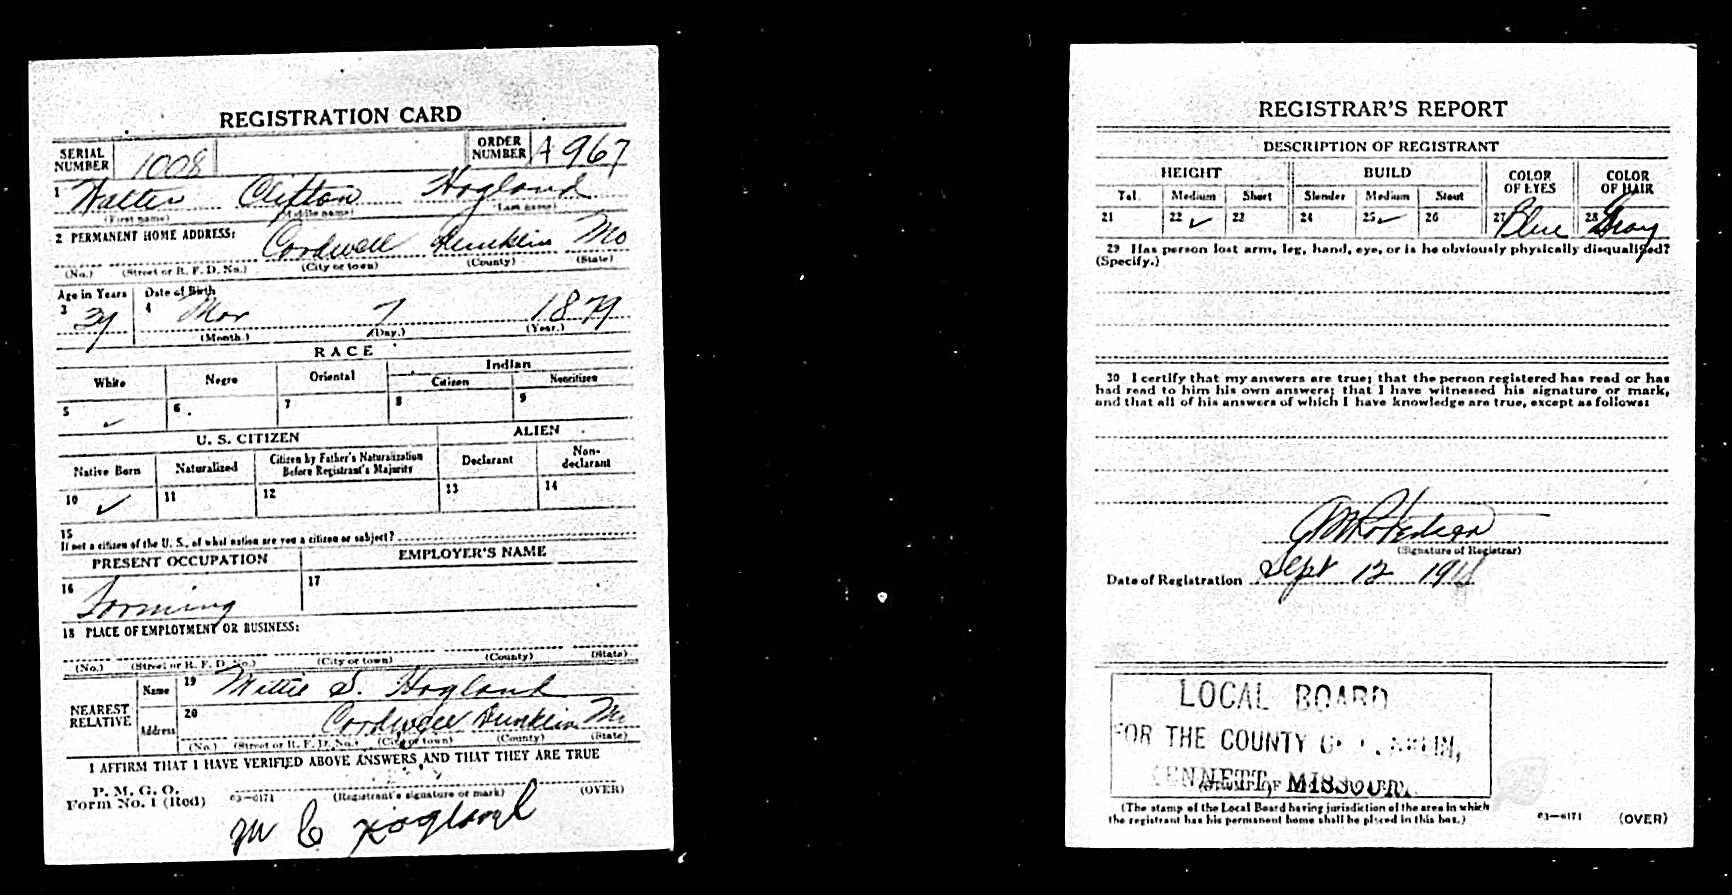 REGISTRATION CARD
SERIAL NUMBER 1008 ORDER NUMBER A 967
1 Walter Clifton Hogland
(First name) (Middle name) (Last name)
2 PERMANENT HOME ADDRESS: Cordwell Dunklin Mo
(No.) (Street or R. F. D. No.) (City or town) (County) (State)
Age in Years Date of Birth
3 39 4 Mar 7 1879
(Month.) (Day.) (Year.)
RACE
White Negro Oriental Indian
Citizen Noncitizen
5 ✓ 6 7 8 9
U. S. CITIZEN ALIEN
Native Born Naturalized Citizen by Father's Naturalization Before Registrant's Majority Declarant Non-declarant
10 ✓ 11 12 13 14
15
If not a citizen of the U. S., of what nation are you a citizen or subject?
PRESENT OCCUPATION EMPLOYER'S NAME
16 Farming 17
18 PLACE OF EMPLOYMENT OR BUSINESS:
(No.) (Street or R. F. D. No.) (City or town) (County) (State)
NEAREST RELATIVE Name 19 Mittie S. Hogland
Address 20 Cordwell Dunklin Mo
(No.) (Street or R. F. D. No.) (City or town) (County) (State)
I AFFIRM THAT I HAVE VERIFIED ABOVE ANSWERS AND THAT THEY ARE TRUE
P. M. G. O.
Form No. 1 (Red) 03—6171 (Registrant's signature or mark) (OVER)
W C Hogland
REGISTRAR'S REPORT
DESCRIPTION OF REGISTRANT
HEIGHT BUILD COLOR OF EYES COLOR OF HAIR
Tal Medium Short Slender Medium Stout
21 22 ✓ 23 24 25 ✓ 26 27 Blue 28 Gray
29 Has person lost arm, leg, hand, eye, or is he obviously physically disqualified?
(Specify.)
30 I certify that my answers are true; that the person registered has read or has
had read to him his own answers; that I have witnessed his signature or mark,
and that all of his answers of which I have knowledge are true, except as follows:
(Signature of Registrar)
Date of Registration Sept 12 1918
LOCAL BOARD
FOR THE COUNTY OF DUNKLIN,
KENNETT, MISSOURI.
(The stamp of the Local Board having jurisdiction of the area in which
the registrant has his permanent home shall be placed in this box.)
03—6171 (OVER)